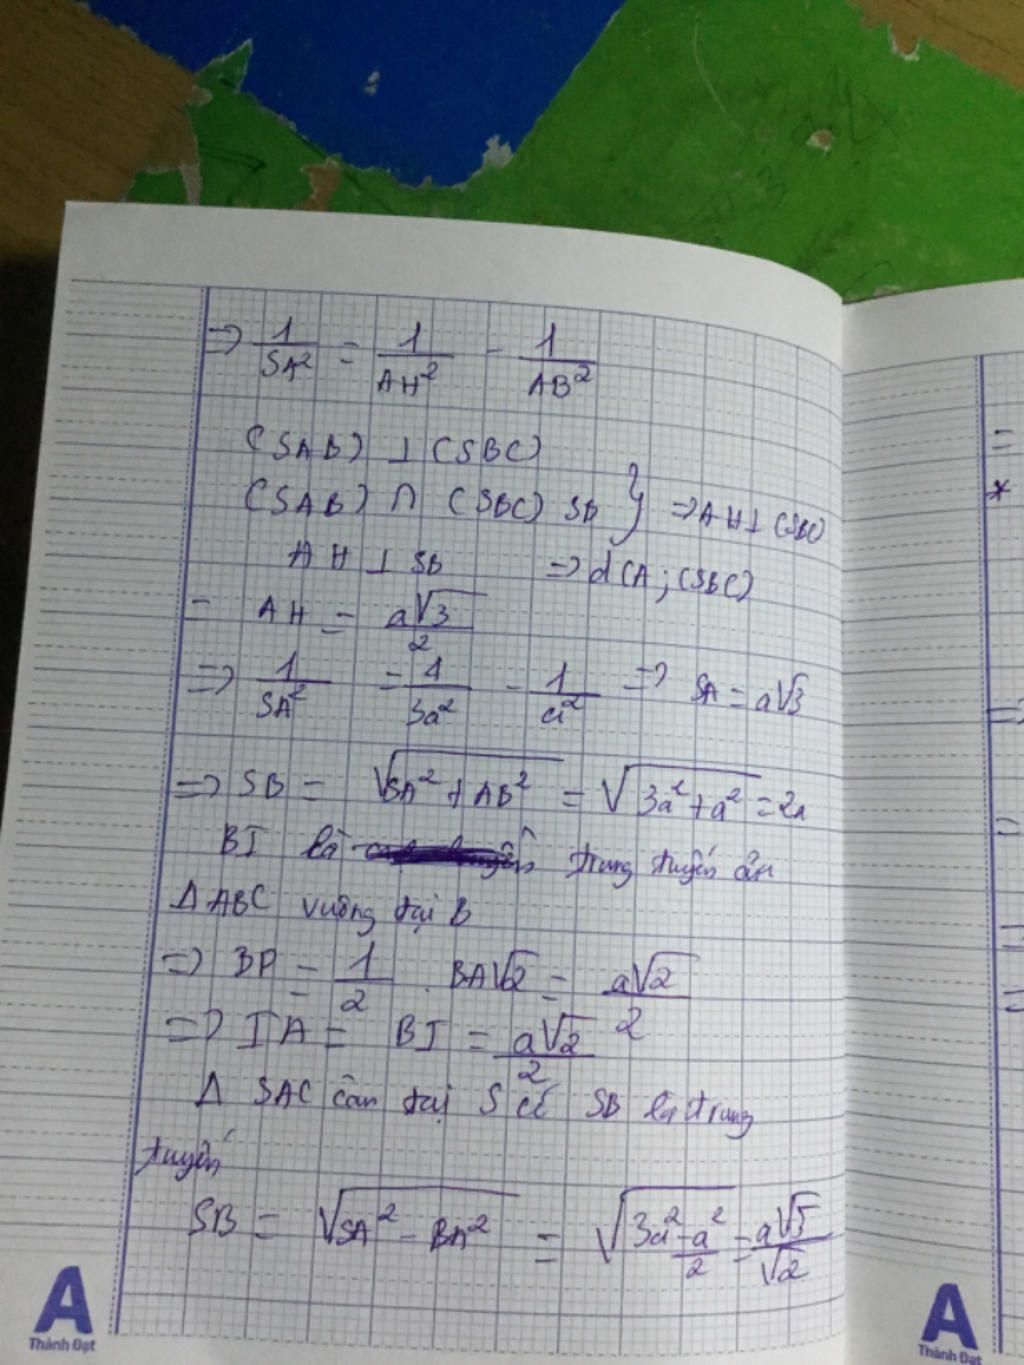 ⇒ 1/SA² = 1/AH² - 1/AB²
(SAB) ⊥ (SBC)
(SAB) ∩ (SBC) SB } ⇒ AH ⊥ (SBC)
AH ⊥ SB ⇒ d(A; (SBC)
= AH = a√3/2
⇒ 1/SA² = 4/3a² - 1/a² ⇒ SA = a√3
⇒ SB = √SA² + AB² = √3a² + a² = 2a
BI là trung tuyến
Δ ABC vuông tại B
⇒ BI = 1/2 . BA√2 = a√2/2
⇒ IA = BI = a√2/2
Δ SAC cân tại S có SB là trung
tuyến
SB = √SA² - BA² = √3a² - a²/2 = a√5/√2
A
Thành Đạt
A
Thành Đạt
=
*
⇒
=
=
=